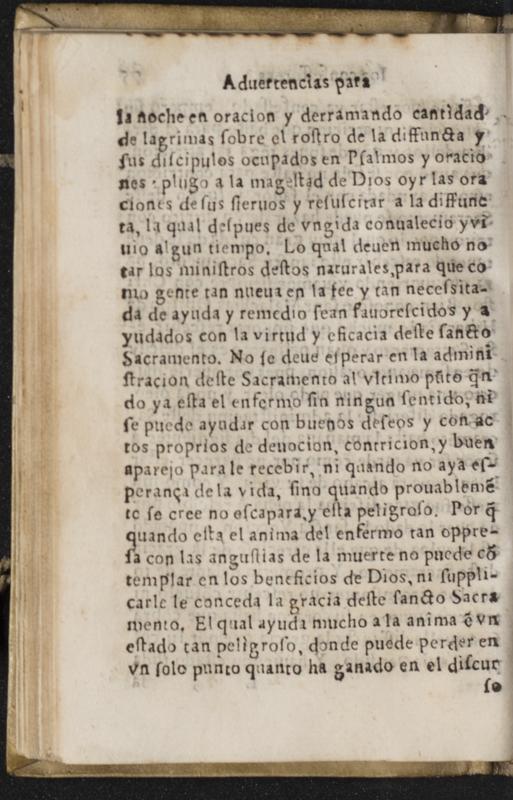 Aduertencias para
la noche en oracion y derramando cantidad
de lagrimas sobre el rostro de la diffuncta y
sus discipulos ocupados en Psalmos y oracio
nes : plugo a la magestad de Dios oyr las ora
ciones de sus sieruos y resuscitar a la diffunc
ta, la qual despues de vngida conualecio y vi
uio algun tiempo. Lo qual deuen mucho no
tar los ministros destos naturales, para que co
mo gente tan nueua en la fee y tan necessita-
da de ayuda y remedio sean fauorescidos y a
yudados con la virtud y eficacia deste sancto
Sacramento. No se deue esperar en la admini
stracion deste Sacramento al vltimo pũto q̃n
do ya esta el enfermo sin ningun sentido, ni
se puede ayudar con buenos deseos y con ac
tos proprios de deuocion, contricion, y buen
aparejo para le recebir, ni quando no aya es-
perança de la vida, sino quando prouablemẽ
te se cree no escapara, y esta peligroso. Por q̃
quando esta el anima del enfermo tan oppre-
sa con las angustias de la muerte no puede cõ
templar en los beneficios de Dios, ni suppli-
carle le conceda la gracia deste sancto Sacra
mento. El qual ayuda mucho a la anima ẽ vn
estado tan peligroso, donde puede perder en
vn solo punto quanto ha ganado en el discur
so